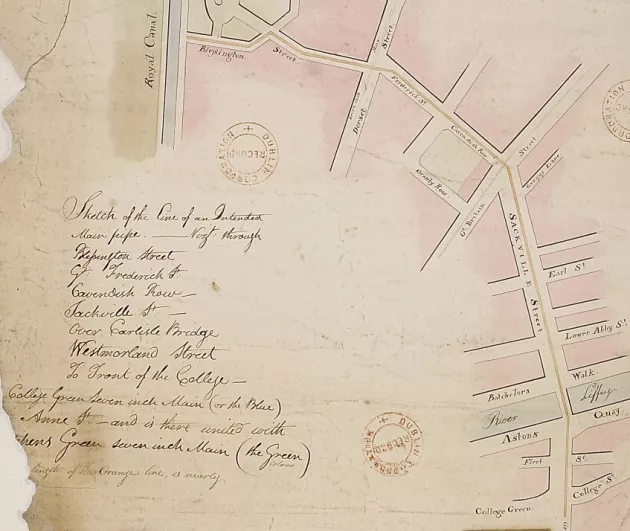 Royal Canal
Blessington Street
Street
Dorset
Frederick St.
Cavendish Row
Granby Row
Gt. Britain
Street
Greggs Lane
SACKVILLE Street
Earl St.
Lower Abby St.
Batchelors Walk
River Liffey
Astons Quay
Fleet St.
College St.
College Green
DUBLIN CORPORATION
RECORDS
DUBLIN CORPORATION
RECORDS
CORPORATION
Sketch of the line of an Intended
Main pipe. — Vizt. through
Blessington Street
Gt. Frederick St.
Cavendish Row —
Sackville St. —
Over Carlisle Bridge
Westmorland Street
To Front of the College —
College Green seven inch Main (or the Blue)
Anne St. — and is there united with
hens Green seven inch Main (the Green)
length of Orange line, is nearly